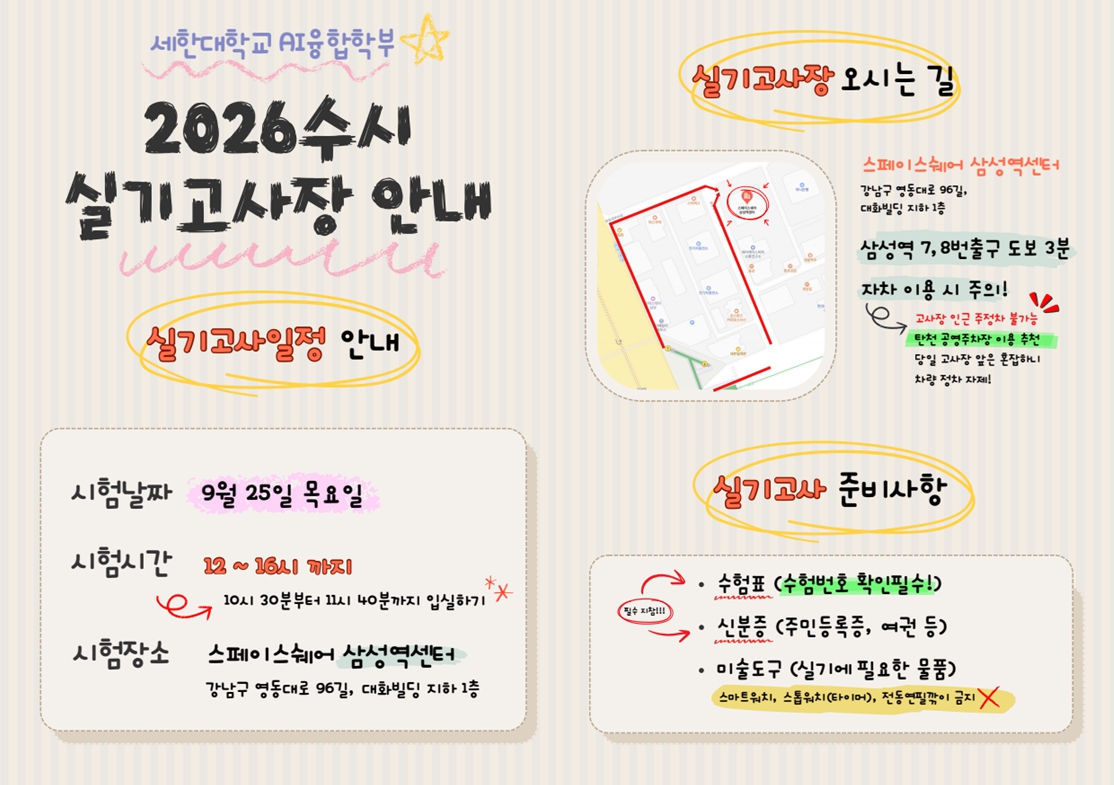 세한대학교 AI융합학부
2026수시
실기고사장 안내
실기고사일정 안내
시험날짜 9월 25일 목요일
시험시간 12 ~ 16시 까지
10시 30분부터 11시 40분까지 입실하기
시험장소 스페이스쉐어 삼성역센터
강남구 영동대로 96길, 대화빌딩 지하 1층
실기고사장 오시는 길
스페이스쉐어 삼성역센터
강남구 영동대로 96길,
대화빌딩 지하 1층
삼성역 7, 8번출구 도보 3분
자차 이용 시 주의!
고사장 인근 주정차 불가능
탄천 공영주차장 이용 추천
당일 고사장 앞은 혼잡하니
차량 정차 자제!
실기고사 준비사항
• 수험표 (수험번호 확인필수!)
필수 지참!!!
• 신분증 (주민등록증, 여권 등)
• 미술도구 (실기에 필요한 물품)
스마트워치, 스톱워치(타이머), 전동연필깎이 금지